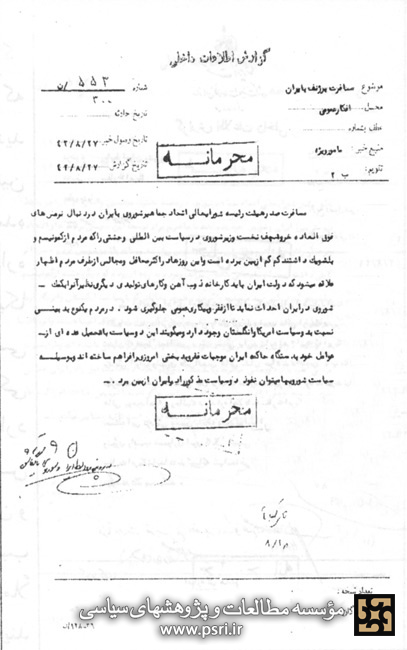 گزارش اطلاعات داخلی
موضوع مسافرت برژنف بایران
شماره ۵۵۲ /ن
۳۰۰
محل افکار عمومی
تاریخ حادثه
عطف بشماره
تاریخ وصول خبر ۴۲/۸/۲۷
منبع خبر: مامور ویژه
تاریخ گزارش ۴۲/۸/۲۷
تقویم: ب ۲
محرمانه
مسافرت صدر هیئت رئیسه شورایعالی اتحاد جماهیر شوروی بایران در دنبال نرمش های
فوق العاده خروشچف نخست وزیر شوروی در سیاست بین المللی وحشتی راکه مردم از کمونیسم و
بلشویک داشتند کم کم از بین برده است و این روزها در اکثر محافل ومجالس از طرف مردم اظهار
علاقه میشود که دولت ایران باید کارخانه ذوب آهن وکارهای تولیدی دیگری نظیر آنرا بکمک
شوروی در ایران احداث نماید تا از فقر و بیکاری عمومی جلوگیری شود. در مردم یکنوع بد بینی
نسبت به دو سیاست آمریکا وانگلستان وجود دارد ومیگویند این دو سیاست باتحمیل عده ای از
عوامل خود به دستگاه حاکمه ایران موجبات فقر و بد بختی امروزی را فراهم ساخته اند و بوسیله
سیاست شوروی ها میتوان نفوذ دو سیاست مذکور را در ایران از بین برد.
محرمانه
۸/۲۸
تعداد نسخه:
مؤسسه مطالعات و پژوهشهای سیاسی
www.psri.ir